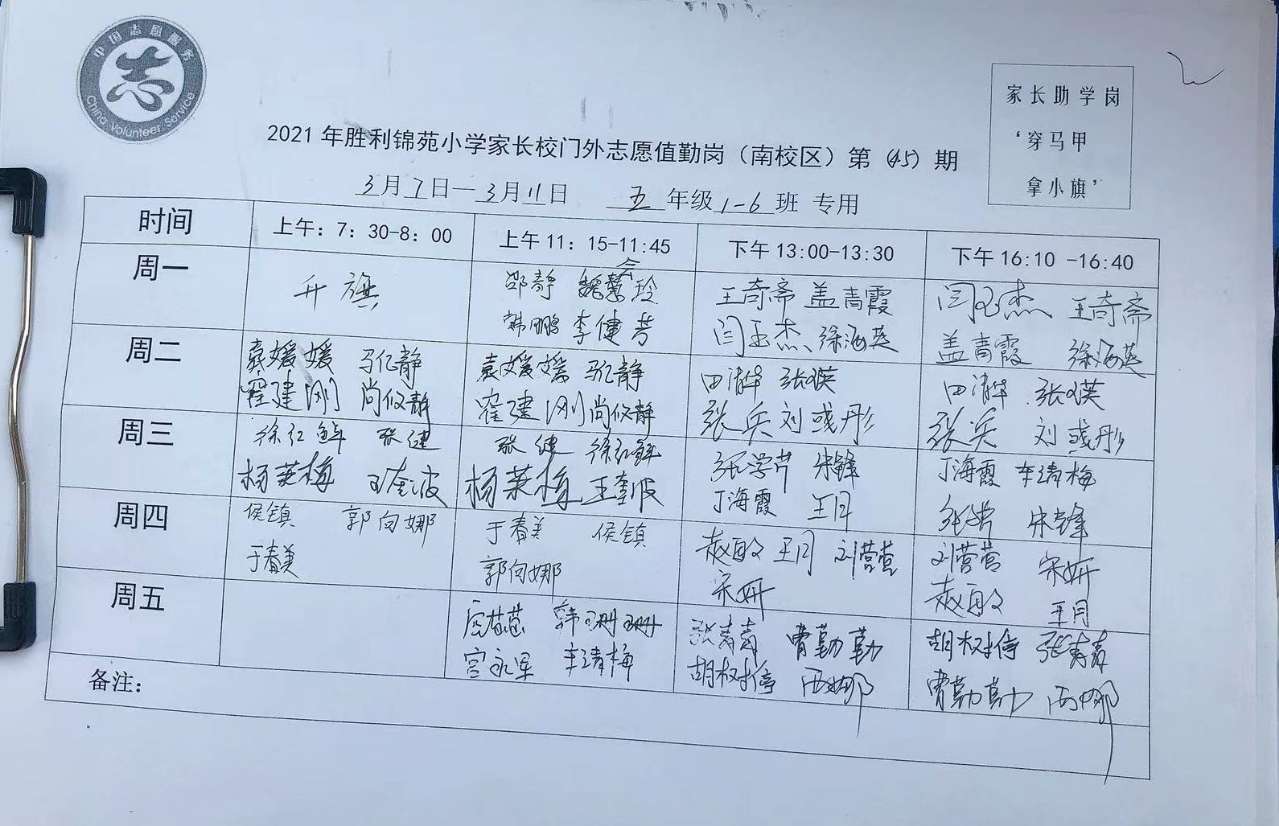 中国志愿服务
志
China Volunteer Service
家长助学岗
‘穿马甲
拿小旗’
2021年胜利锦苑小学家长校门外志愿值勤岗（南校区）第（45）期
3月7日—3月11日 五年级1-6班 专用
时间 上午：7：30-8：00 上午11：15-11:45 下午13:00-13:30 下午16:10 -16:40
周一 升旗 邵静 玲 王奇斋 盖青霞 闫玉杰 王奇斋
韩鹏 李健芳 闫玉杰 徐海英 盖青霞 徐海英
周二 袁媛媛 马亿静 袁媛媛 马亿静 田清华 张瑛 田清华 张瑛
霍建刚 尚似静 霍建刚 尚似静 张兵 刘彧彤 张兵 刘彧彤
周三 徐红鲜 张健 张健 徐红鲜 张学芹 宋锋 丁海霞 车清梅
杨英梅 王奎波 杨英梅 王奎波 丁海霞 王月 宋锋
周四 侯镇 郭向娜 于春美 侯镇 赵 王月 刘营营 刘营营 宋妍
于春美 郭向娜 宋妍 赵 王月
周五 韩珊珊 张青青 曹勤勤 胡 张青青
宫永军 车清梅 胡 娜 曹勤勤 娜
备注：